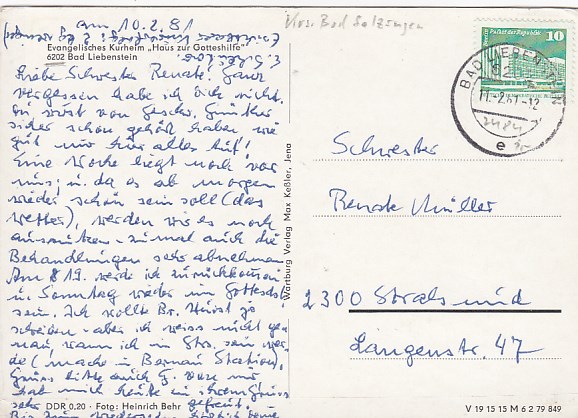 am 10.2.81
Evangelisches Kurheim „Haus zur Gotteshilfe"
6202 Bad Liebenstein
Liebe Schwester Renate! Ganz
vergessen habe ich Dich nicht.
Du wirst von Geschw. Günther
sicher schon gehört haben wie
gut mir hier alles tut!
Eine Woche liegt noch vor
uns; u. da es ab morgen
wieder schön sein soll (das
Wetter), werden wir es noch
ausnützen - zumal auch die
Behandlungen sehr abnehmen
Am 19. werde ich zurückkommen
u. Sonntag wieder im Gottesd.
sein. Ich wollte Br.
schreiben - aber ich weiss nicht ge-
nau, wann ich in Str. sein wer-
de (mache in Bernau Station).
hat mich heute in ihrem Gruss
sehr gefreut.
DDR 0,20 · Foto: Heinrich Behr
Wartburg Verlag Max Keßler, Jena
Vlg. Bad Salzungen
Palast der Republik
10
BAD LIEBENSTEIN
11.-2.81-12
e
Schwester
Renate Müller
2300 Stralsund
Langenstr. 47
V 19 15 15 M 6 2 79 849